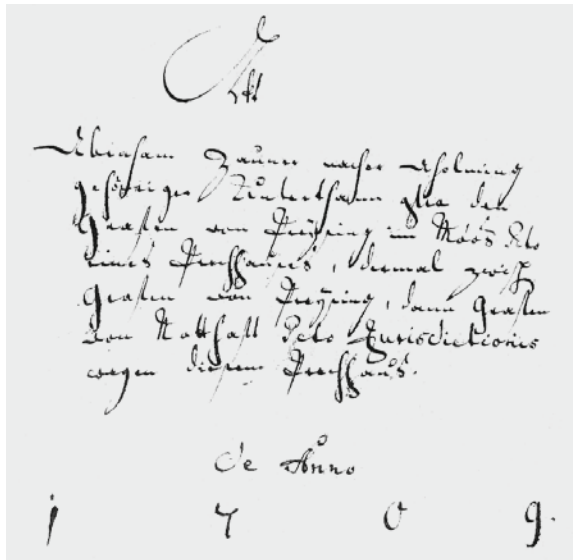 Akt
Abraham Zauner nacher Aholming
gehöriger Unterthann gha den
Grafen von Preÿsing im Moos Pto
eines Prechhauses, dermal zwisch
Grafen von Preÿsing, dann Grafen
von Notthafft Pcto Jurisdictionis
wegen diesem Prechhaus.
de Anno
1 7 0 9.